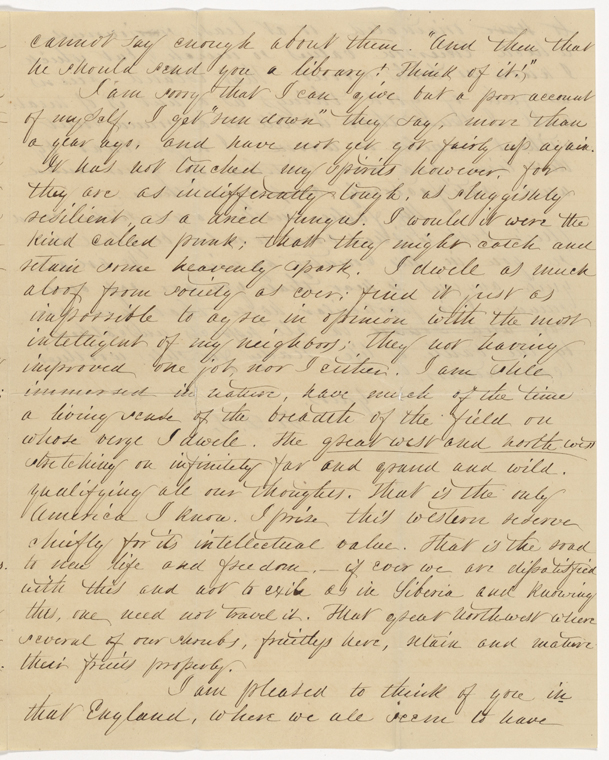 cannot say enough about them. "And then that
he should send you a library! Think of it!"
I am sorry that I can give but a poor account
of myself. I got "run down" they say, more than
a year ago, and have not yet got fairly up again.
It has not touched my spirits however, for
they are as indifferently tough, as sluggishly
resilient, as a dried fungus. I would it were the
kind called punk; that they might catch and
retain some heavenly spark. I dwell as much
aloof from society as ever; find it just as
impossible to agree in opinion with the most
intelligent of my neighbors; they not having
improved one jot, nor I either. I am still
immersed in nature, have much of the time
a living sense of the breadth of the field on
whose verge I dwell. The great west and north west
stretching on infinitely far and grand and wild,
qualifying all our thoughts. That is the only
America I know. I prize this western reserve
chiefly for its intellectual value. That is the road
to new life and freedom, – if ever we are dissatisfied
with this and not to exile as in Siberia and knowing
this, one need not travel it. That great Northwest where
several of our shrubs, fruitless here, retain and mature
their fruits properly.
I am pleased to think of you in
that England, where we all seem to have